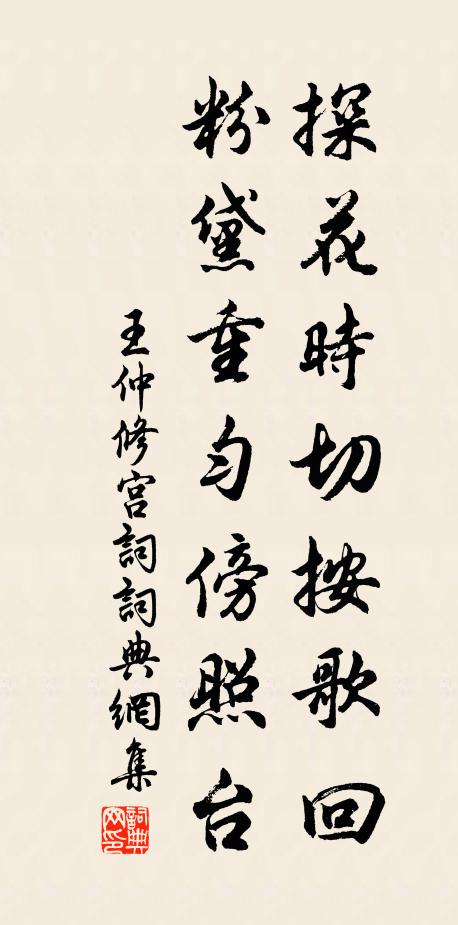 探花時切按歌回
粉黛重匀傍照台
王仲修宫詞詞典網集
詞典网印